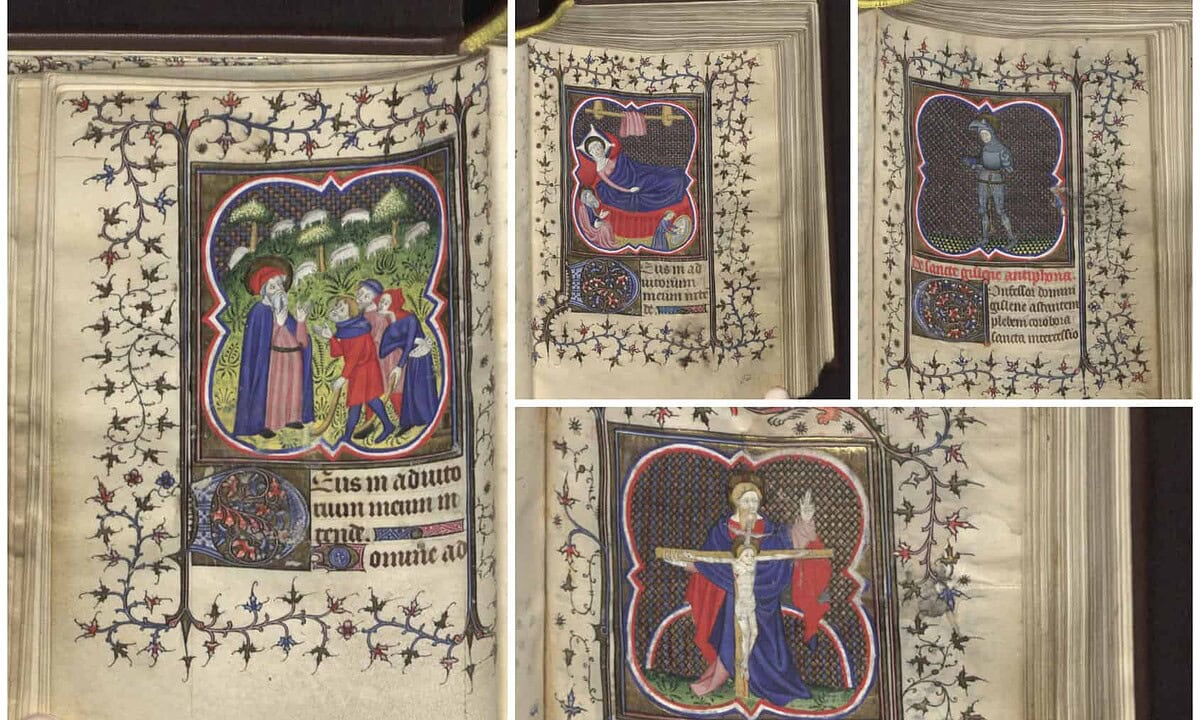 Deus in adiuto
rium meum in
tende.
Domine ad
Deus in ad
iutorium
meum inte
de
De sancte gillene antiphona.
Confessor domini
gillene astantem
plebem corobora
sancta intercessio